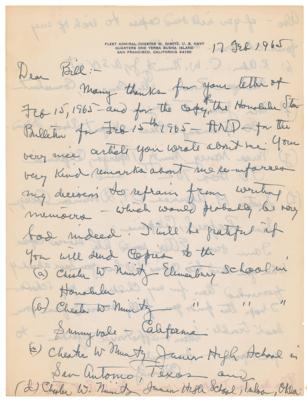 FLEET ADMIRAL CHESTER W. NIMITZ, U. S. NAVY
QUARTERS ONE YERBA BUENA ISLAND
SAN FRANCISCO, CALIFORNIA 94130
17 Feb 1965
Dear Bill:-
Many thanks for your letter of
Feb 15, 1965 - and for the copy, the Honolulu Star
Bulletin for Feb 15th 1965 - AND - for the
very nice article you wrote about me. Your
very kind remarks about me
my decision to refrain from writing
memoirs - which would probably be very
bad indeed. I will be grateful if
you will send copies to the
(a) Chester W Nimitz - Elementary School in
Honolulu
(b) Chester W Nimitz " " "
Sunnyvale - California
(c) Chester W Nimitz Junior High School in
San Antonio, Texas and
(d) Chester W. Nimitz Junior High School, Tulsa, Okla.